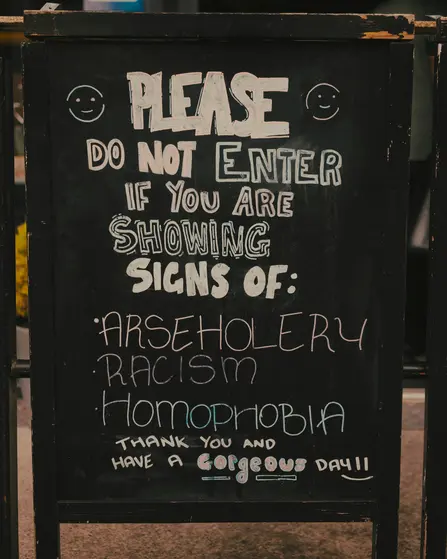 PLEASE
DO NOT ENTER
IF YOU ARE
SHOWING
SIGNS OF:
·ARSEHOLERY
·RACISM
·HOMOPHOBIA
THANK YOU AND
HAVE A GORGEOUS DAY!!